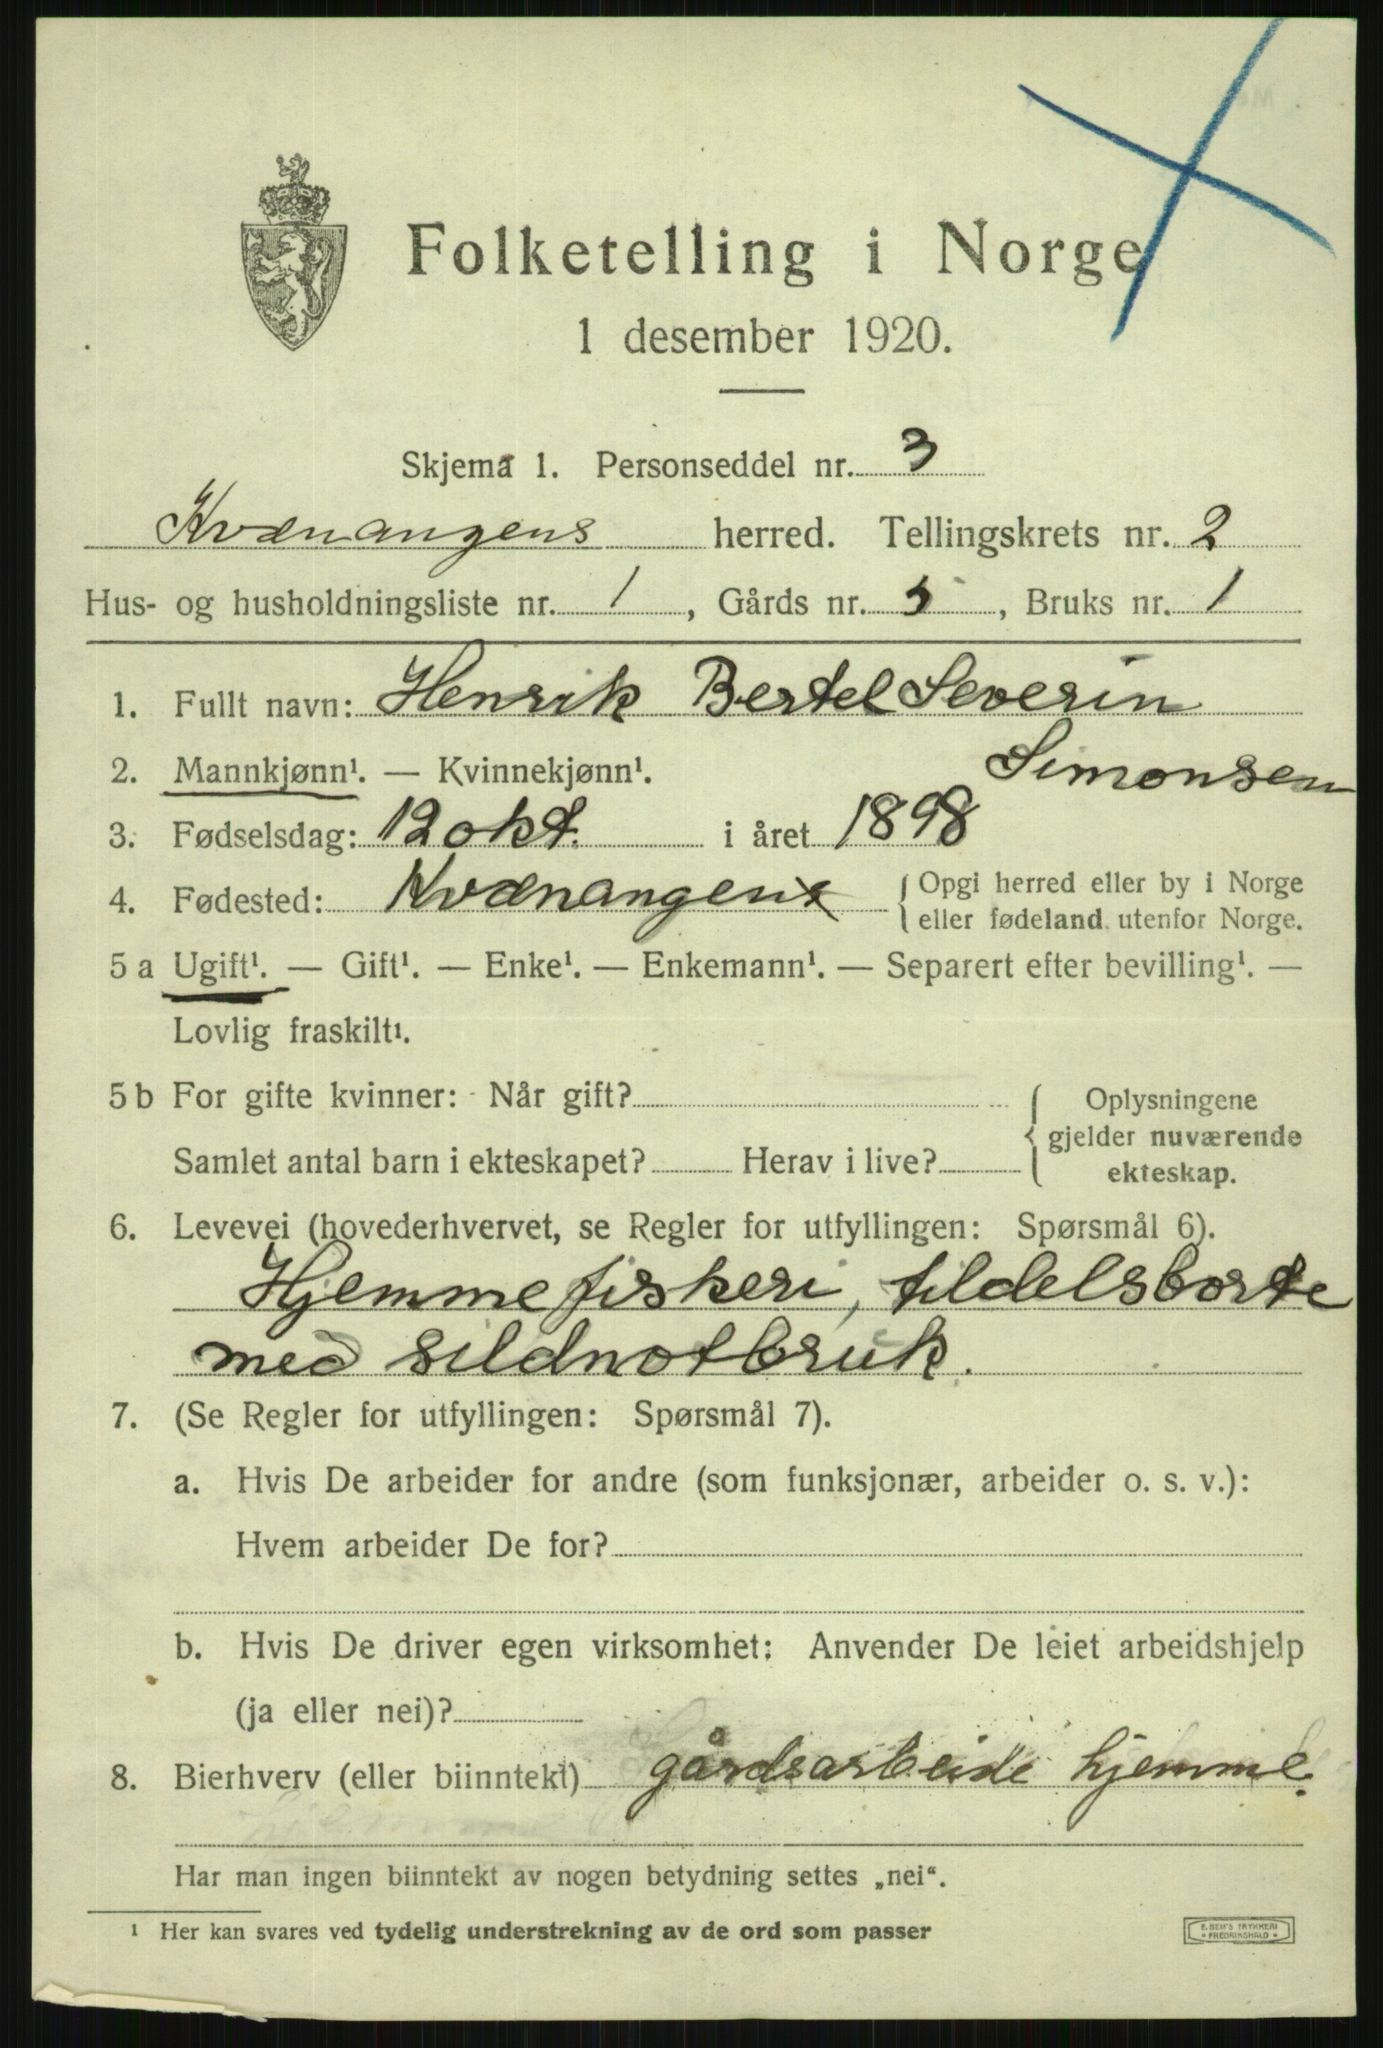 Folketelling i Norge
1 desember 1920.
Skjema 1. Personseddel nr. 3
Kvænangens herred. Tellingskrets nr. 2
Hus- og husholdningsliste nr. 1, Gårds nr. 5, Bruks nr. 1
1. Fullt navn: Henrik Bertel Severin
Simonsen
2. Mannkjønn¹. — Kvinnekjønn¹.
3. Fødselsdag: 12 okt. i året 1898
4. Fødested: Kvænangen Opgi herred eller by i Norge
eller fødeland utenfor Norge.
5 a Ugift¹. — Gift¹. — Enke¹. — Enkemann¹. — Separert efter bevilling¹. —
Lovlig fraskilt¹.
5 b For gifte kvinner: Når gift? Oplysningene
gjelder nuværende
Samlet antal barn i ekteskapet? Herav i live? ekteskap.
6. Levevei (hovederhvervet, se Regler for utfyllingen: Spørsmål 6).
Hjemmefiskeri, tildelsborte
med sildnotbruk.
7. (Se Regler for utfyllingen: Spørsmål 7).
a. Hvis De arbeider for andre (som funksjonær, arbeider o. s. v.):
Hvem arbeider De for?
b. Hvis De driver egen virksomhet: Anvender De leiet arbeidshjelp
(ja eller nei)?
8. Bierhverv (eller biinntekt) gårdsarbeide hjemme.
Har man ingen biinntekt av nogen betydning settes „nei“.
¹ Her kan svares ved tydelig understrekning av de ord som passer
E. SEM'S TRYKKERI
FREDRIKSHALD